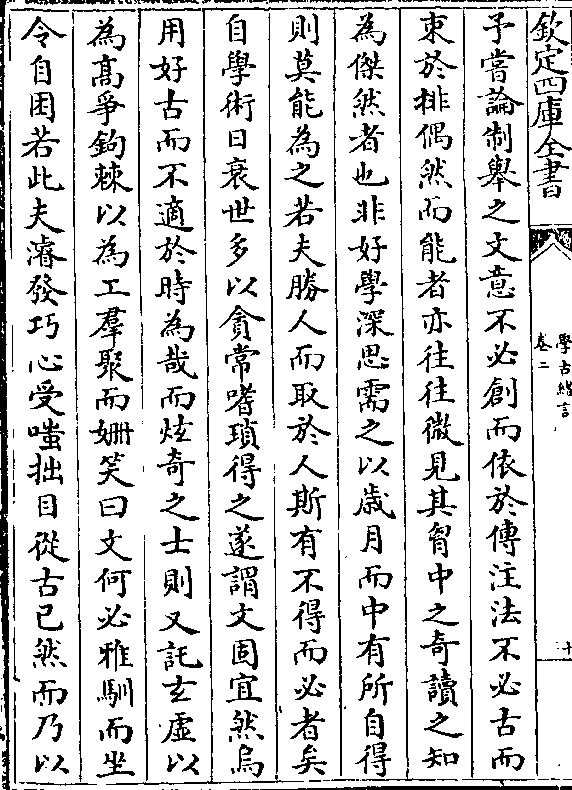 欽定四庫全書
學古緒言
卷二
十
予嘗論制舉之文意不必創而依於傳注法不必古而
束於排偶然而能者亦往往微見其胷中之奇讀之知
為傑然者也非好學深思需之以歲月而中有所自得
則莫能為之若夫勝人而取於人斯有不得而必者矣
自學術日衰世多以貪常嗜瑣得之遂謂文固宜然烏
用好古而不適於時為哉而炫奇之士則又託玄虛以
為髙爭鉤棘以為工羣聚而姍笑曰文何必雅馴而坐
令自困若此夫濬發巧心受嗤拙目從古已然而乃以